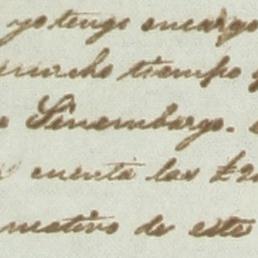 yo tengo encargo
mucho tiempo
Sinembargo.
cuenta las £2
motivo de este